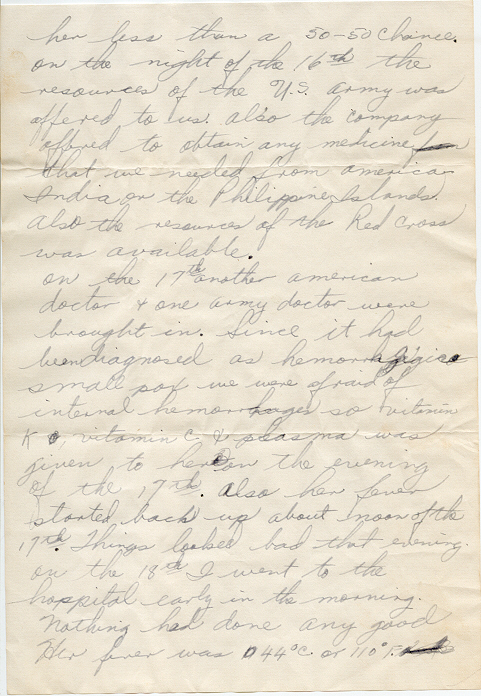 her less than a 50-50 chance.
on the night of the 16th the
resources of the U.S. army was
offered to us. also the company
offered to obtain any medicine
that we needed from america
India or the Philippine Islands.
also the resources of the Red Cross
was available.
on the 17th another american
doctor & one army doctor were
brought in. Since it had
been diagnosed as hemorrhagic
small pox we were afraid of
internal hemorrhages so vitamin
K, vitamin C. & plasma was
given to her on the evening
of the 17th. also her fever
started back up about noon of the
17th. Things looked bad that evening.
on the 18th I went to the
hospital early in the morning.
Nothing had done any good
Her fever was 44°C. or 110°F.